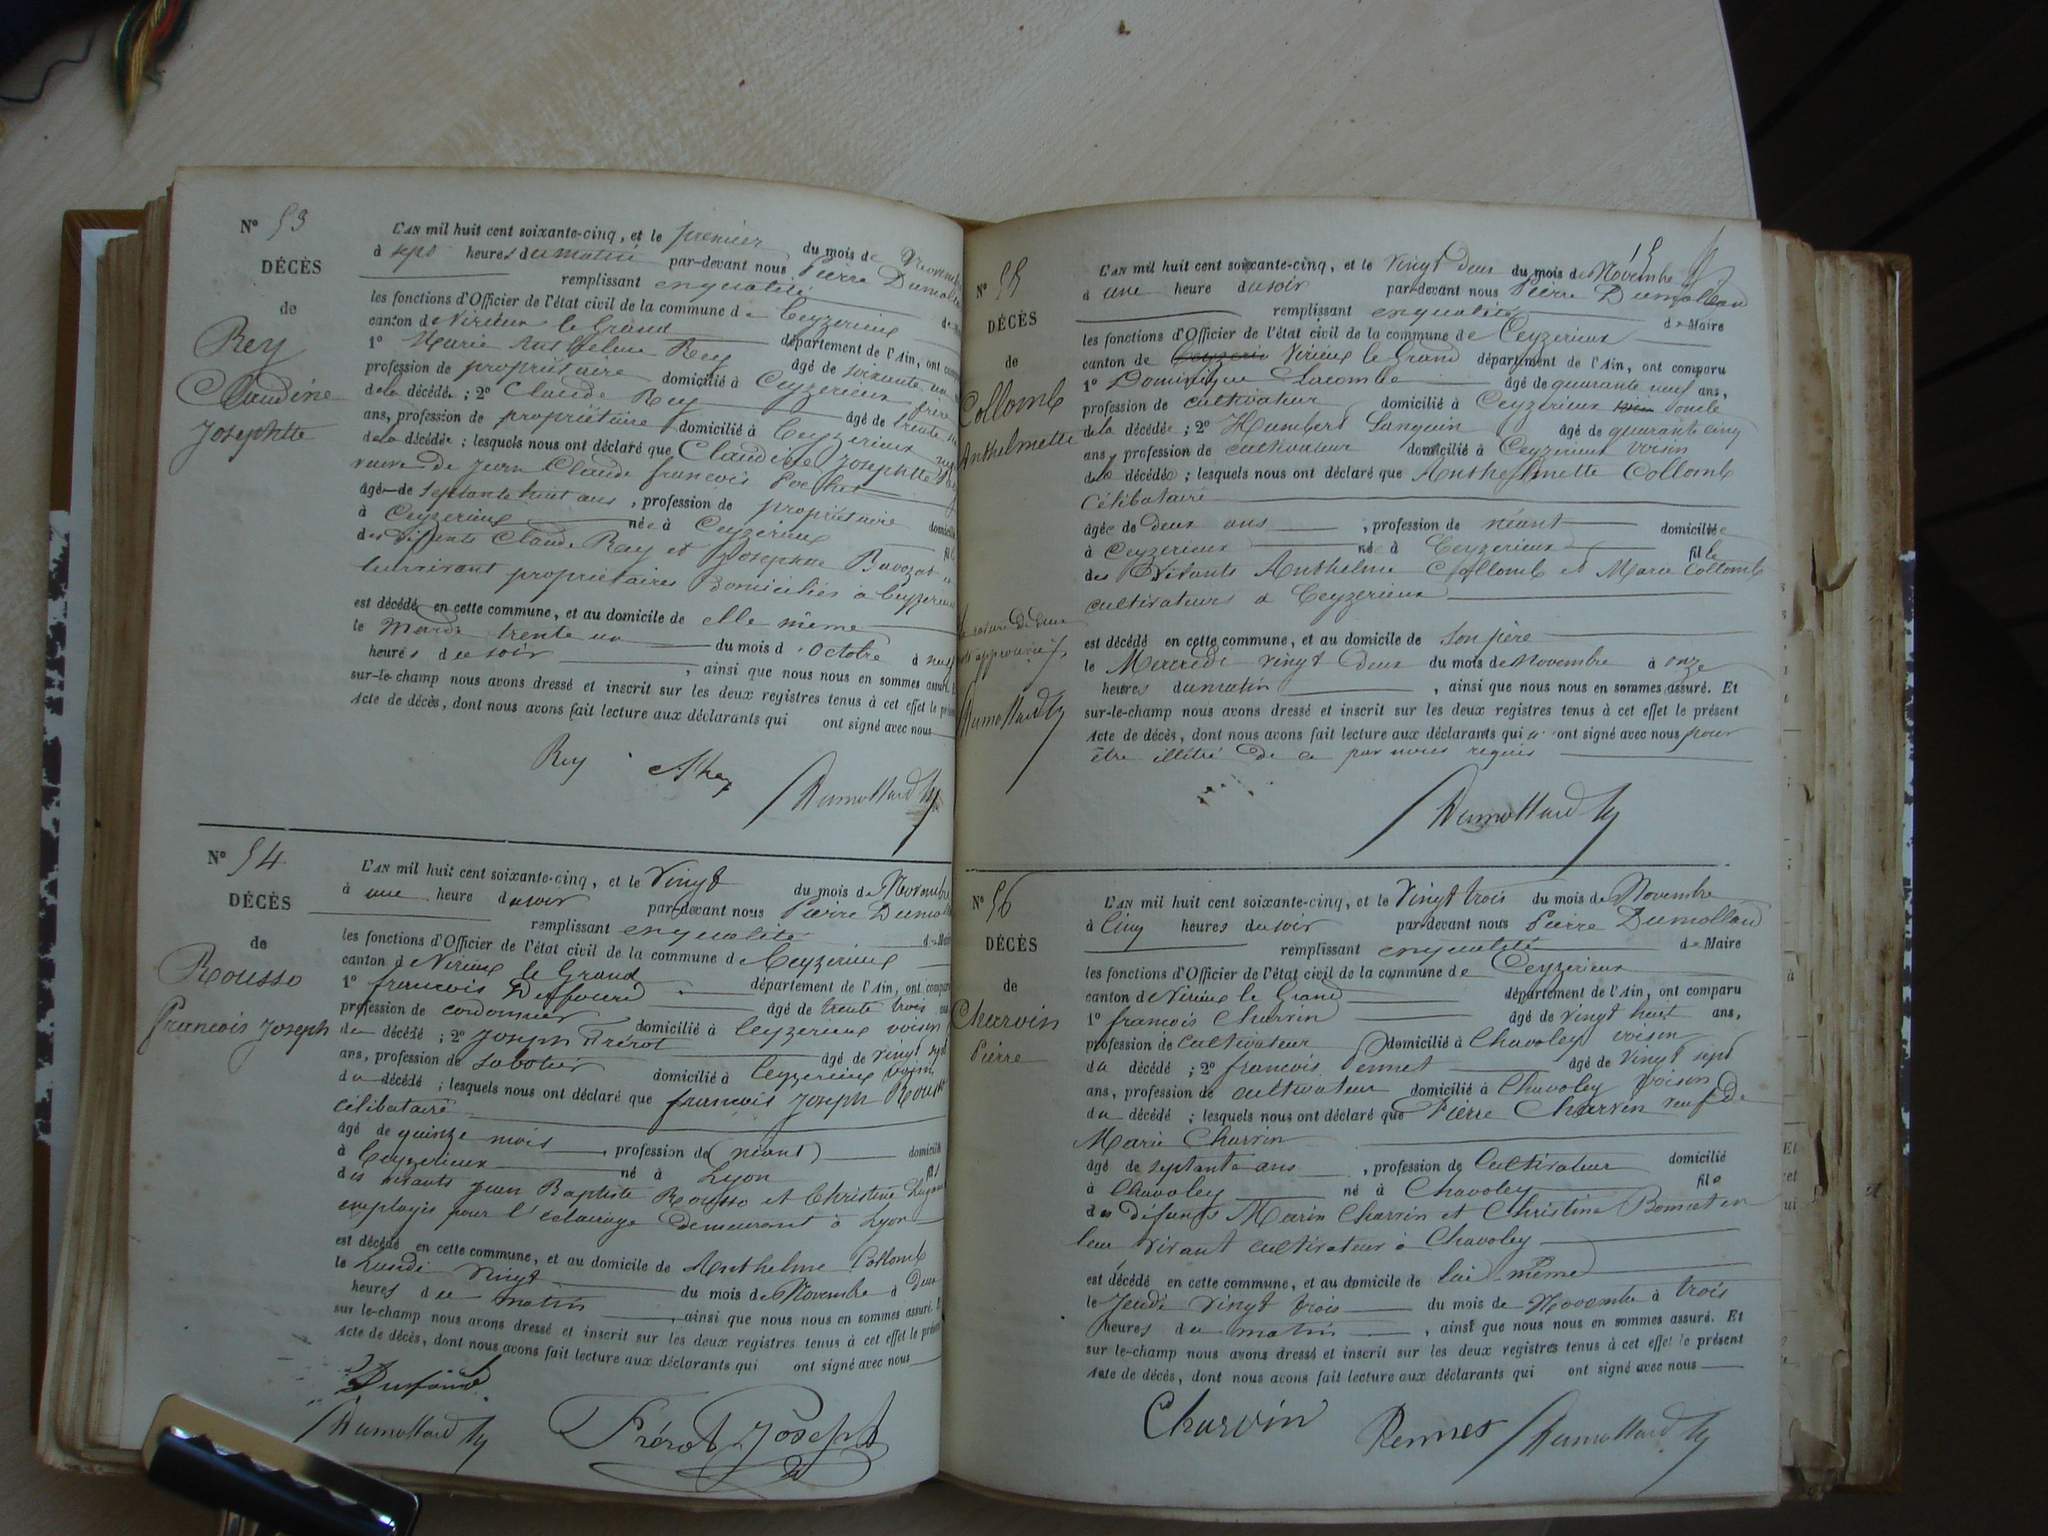 N° 53
DÉCÈS
de
Rey
Claudine
Josephtte
L'AN mil huit cent soixante-cinq, et le premier du mois de
à sept heures du matin par-devant nous Pierre
remplissant en qualité
les fonctions d'Officier de l'état civil de la commune de Ceyzerieux
canton de Virieux le Grand département de l'Ain, ont
1° Marie Anthelme Rey âgé de soixante
profession de propriétaire domicilié à Ceyzerieux frère
de la décédée ; 2° Claude Rey âgé de trente
ans, profession de propriétaire domicilié à Ceyzerieux
de la décédée ; lesquels nous ont déclaré que Claudine Josephtte
veuve de Jean Claude francois Pochet
âgé de septante huit ans, profession de propriétaire
à Ceyzerieux née à Ceyzerieux
des défunts Claude Rey et Josephtte Bavozat
leur vivant propriétaires Domiciliés à Ceyzerieux
est décédé en cette commune, et au domicile de elle même
le Mardi trente un du mois d'Octobre à neuf
heures du soir, ainsi que nous nous en sommes assuré. Et
sur-le-champ nous avons dressé et inscrit sur les deux registres tenus à cet effet le présent
Acte de décès, dont nous avons fait lecture aux déclarants qui ont signé avec nous
Rey
Dumollard
N° 54
DÉCÈS
de
Rousso
Francois Joseph
L'AN mil huit cent soixante-cinq, et le Vingt du mois de Novembre
à une heure du soir par-devant nous Pierre
remplissant en qualité de
les fonctions d'Officier de l'état civil de la commune de Ceyzerieux
canton de Virieux le Grand
1° francois Dufourd département de l'Ain, ont comparu
profession de cordonnier âgé de trente trois
du décédé ; 2° Joseph Frérot domicilié à Ceyzerieux voisin
ans, profession de sabotier âgé de vingt sept
du décédé ; lesquels nous ont déclaré que francois Joseph domicilié à Ceyzerieux voisin
célibataire
âgé de quinze mois, profession de (néant)
à Ceyzerieux né à Lyon fils
des vivants Jean Baptiste Rousso et Christine
employés pour l'éclairage demeurant à Lyon
est décédé en cette commune, et au domicile de Anthelme Collomb
le Lundi vingt du mois de Novembre à Deux
heures du matin, ainsi que nous nous en sommes assuré. Et
sur le-champ nous avons dressé et inscrit sur les deux registres tenus à cet effet le présent
Acte de décès, dont nous avons fait lecture aux déclarants qui ont signé avec nous
Dufourd
Dumollard
Frérot Joseph
N° 55
DÉCÈS
de
Collomb
Anthelmette
L'AN mil huit cent soixante-cinq, et le Vingt deux du mois de Novembre
à une heure du soir par-devant nous Pierre Dumollard
remplissant en qualité de Maire
les fonctions d'Officier de l'état civil de la commune de Ceyzerieux
canton de Virieux le Grand département de l'Ain, ont comparu
1° Dominique Lacombe âgé de quarante neuf ans,
profession de cultivateur domicilié à Ceyzerieux oncle
de la décédée ; 2° Humbert Sanguin âgé de quarante cinq
ans, profession de cultivateur domicilié à Ceyzerieux voisin
de la décédée ; lesquels nous ont déclaré que Anthelmette Collomb
Célibataire
âgée de deux ans, profession de néant domiciliée
à Ceyzerieux née à Ceyzerieux fille
des vivants Anthelme Collomb et Marie Collomb
cultivateurs à Ceyzerieux
est décédé en cette commune, et au domicile de son père
le Mercredi vingt Deux du mois de Novembre à onze
heures du matin, ainsi que nous nous en sommes assuré. Et
sur-le-champ nous avons dressé et inscrit sur les deux registres tenus à cet effet le présent
Acte de décès, dont nous avons fait lecture aux déclarants qui n'ont signé avec nous pour
être illétré de ce par nous requis
Dumollard
Dumollard
N° 56
DÉCÈS
de
Charvin
Pierre
L'AN mil huit cent soixante-cinq, et le Vingt trois du mois de Novembre
à Cinq heures du soir par-devant nous Pierre Dumollard
remplissant en qualité de Maire
les fonctions d'Officier de l'état civil de la commune de Ceyzerieux
canton de Virieux le Grand département de l'Ain, ont comparu
1° francois Charvin âgé de vingt huit ans,
profession de cultivateur domicilié à Chavoley voisin
du décédé ; 2° francois Pennet âgé de vingt sept
ans, profession de cultivateur domicilié à Chavoley voisin
du décédé ; lesquels nous ont déclaré que Pierre Charvin veuf de
Marie Charvin
âgé de septante ans, profession de Cultivateur domicilié
à Chavoley né à Chavoley fils
des défunts Marin Charvin et Christine en
leur vivant cultivateur à Chavoley
est décédé en cette commune, et au domicile de lui même
le Jeudi vingt trois du mois de Novembre à trois
heures du matin, ainsi que nous nous en sommes assuré. Et
sur le-champ nous avons dressé et inscrit sur les deux registres tenus à cet effet le présent
Acte de décès, dont nous avons fait lecture aux déclarants qui ont signé avec nous
Charvin
Pennet
Dumollard